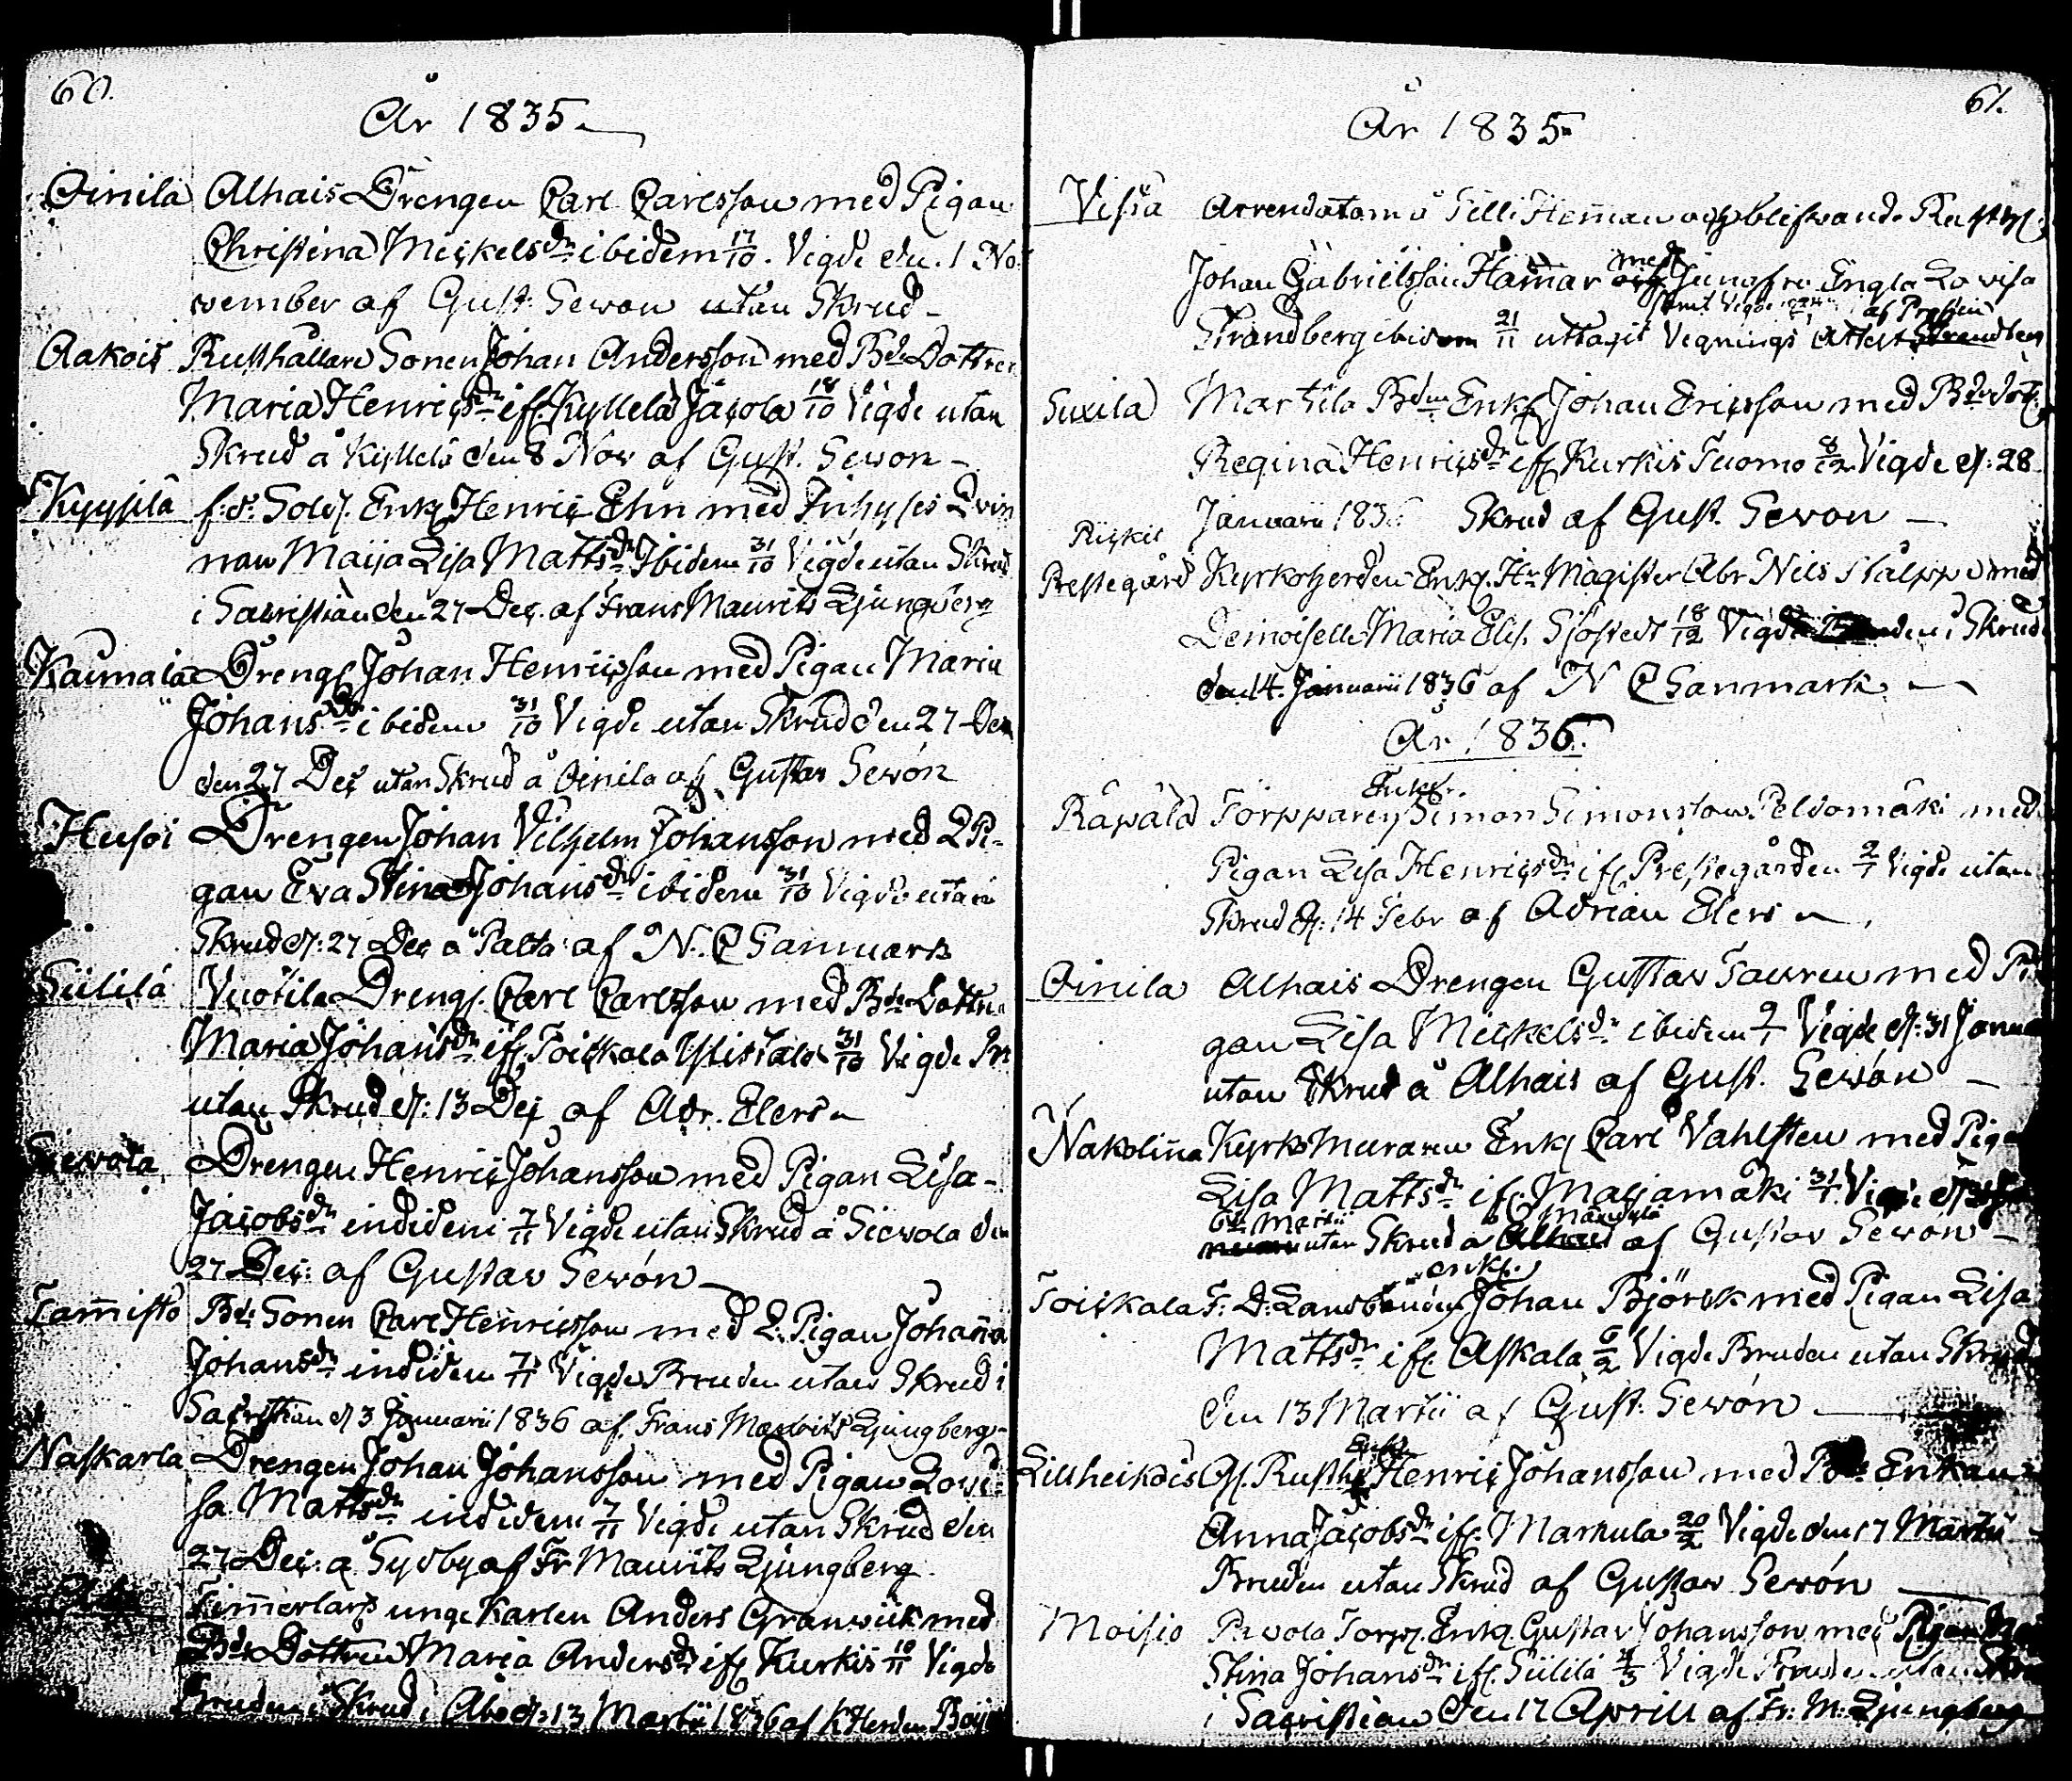 60.
År 1835
Oinila Alhais Drengen Carl Carlsson med Pigan
Christina Mickelsdr ibidem 17/10. Vigde den 1 No-
vember af Gust. Sewon utan Skrud
Aakois Rusthållare Sonen Johan Andersson med Bde Dottren
Maria Henricsdr ifr. Kyllelä Jacola 18/10 Vigde utan
Skrud å Kyllelä den 8 Nov af Gust. Sewon
Kyysilä f.d. Sold. Enkl. Henric Ehn med Inhyses Qvin
nan Maija Lisa Mattsdr Ibidem 31/10 Vigde utan Skrud
i Sacristian den 27 Dec. af Frans Maurits Ljungberg
Kaumala Dreng. Johan Henricsson med Pigan Maria
Johansdr ibidem 31/10 Vigde utan Skrud den 27 Dec
den 27 Dec utan Skrud å Oinila af Gustav Sewón
Husoi Drengen Johan Vilhelm Johansson med L Pi-
gan Eva Stina Johansdr ibidem 31/10 Vigde utan
Skrud d. 27 Dec å Palta af N. C Sanmark
Siililä Vuotila Dreng. Carl Carlsson med Bde Dottren
Maria Johansdr ifr. Toiskala Ylistalo 31/10 Vigde Br
utan Skrud d. 13 Dec af Adr. Elers
Siewola Drengen Henric Johansson med Pigan Lisa
Jacobsdr indidem 7/11 Vigde utan Skrud å Siewola den
27 Dec. af Gustav Sewón
Tammisto Bde Sonen Carl Henricsson med L. Pigan Johanna
Johansdr indidem 7/11 Vigde Bruden utan Skrud i
Sacristian d 3 Januarii 1836 af Frans Maurits Ljungberg
Naskarla Drengen Johan Johansson med Pigan Lovi-
sa Mattsdr indidem 7/11 Vigde utan Skrud den
27 Dec. å Sydby af Fr Maurits Ljungberg
Timmerkarls unge Karlen Anders Granwik med
Bde Dottren Maria Andersdr ifr. Kurkis 10/11 Vigde
Bruden i Skrud i Åbo d. 13 Martii 1836 af K Herden
61.
År 1835
Vissa Arrendatorn å Silli Heman och blifwande Rusth.
Johan Gabrielsson Hamar med Jungfru Engla Lovisa
samt Vigde af Prosten
Strandberg ibidem 21/11 uttagit Vignings Attest Strandberg
Suxila Martila Bdn Enkl. Johan Ericsson med Bde dot.
Regina Henricsdr ifr. Kurkis Tuomo 8/12 Vigde d. 28
Januarii 183 Skrud af Gust. Sewon
Piiskis
Prestegård Kyrkoherden Enkl. Hr Magister Abr Nils Stålpp med
Demoiselle Maria Elis. Sjöstedt 18/12 Vigde Bruden i Skrud
den 14. Januarii 1836 af N C Sanmark
År 1836.
Enkl.
Räpälä Torpparen Simon Simonsson Peldomäki med
Pigan Lisa Henricsdr ifr. Prestegården 2/1 Vigde utan
Skrud d. 14 Febr af Adrian Elers
Oinila Alhais Drengen Gustav Tauren med Pi-
gan Lisa Mickelsdr ibidem 9/1 Vigde d. 31 Janua
utan Skrud å Alhais af Gust. Sewón
Nakolina Kyrko Muraren Enkl. Carl Vahlsten med Piga
Lisa Mattsdr ifr. Marjamäki 31/1 Vigde
6te Martii
utan Skrud å af Gustav Sewon
enkl.
Toiskala F. D. Landbonden Johan Björk med Pigan Lisa
Mattsdr ifr. Askala 6/2 Vigde Bruden utan Skrud
den 13 Martii af Gust. Sewón
Enkl
Lillheikois Gl. Rusth. Henric Johansson med Bde Enkan
Anna Jacobsdr ifr. Markula 20/2 Vigde den 17 Martii
Bruden utan Skrud af Gustav Sewón
Moisio Pavola Torp. Enkl Gustav Johansson med Pigan
Stina Johansdr ifr. Siililä Vigde Bruden utan Skrud
i Sacristian Den 17 Aprill af Fr. M. Ljungberg